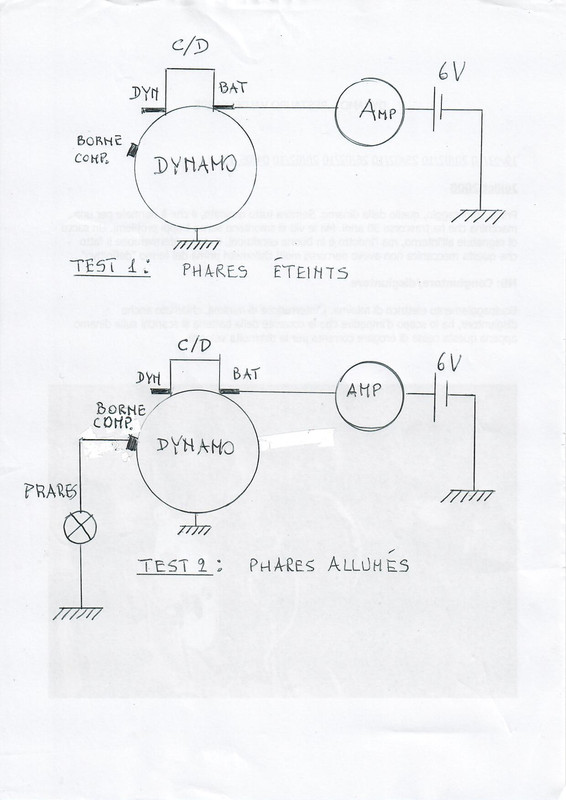 C/D
DYN
BAT
6V
AMP
BORNE
COMP.
DYNAMO
TEST 1: PHARES ÉTEINTS
C/D
DYN
BAT
6V
AMP
BORNE
COMP.
DYNAMO
PRARES
TEST 2: PHARES ALLUMÉS